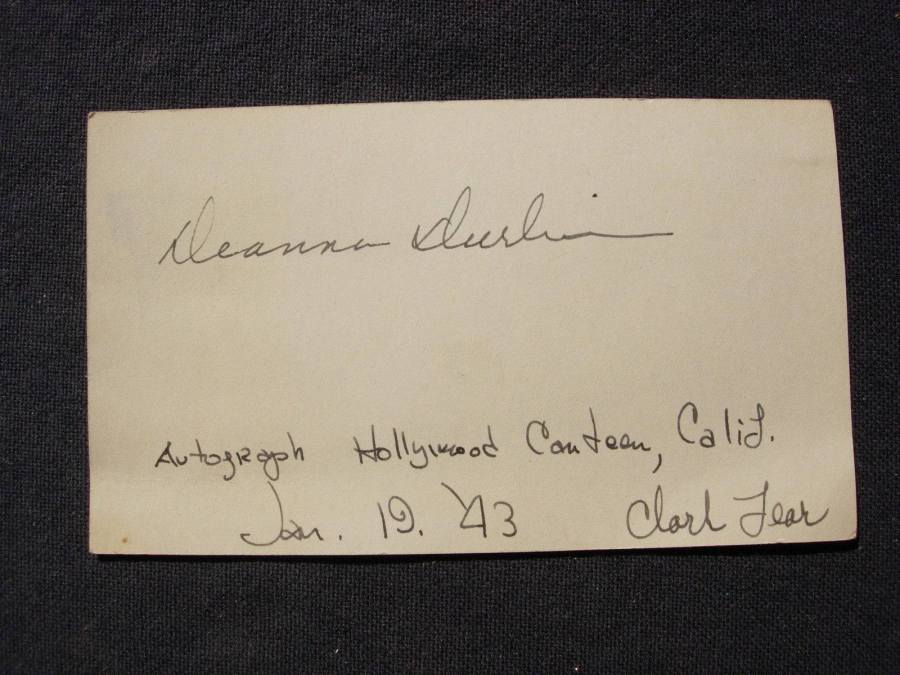 Deanna Durbin
Autograph Hollywood Canteen, Calif.
Jan. 19. '43 Clark Fear